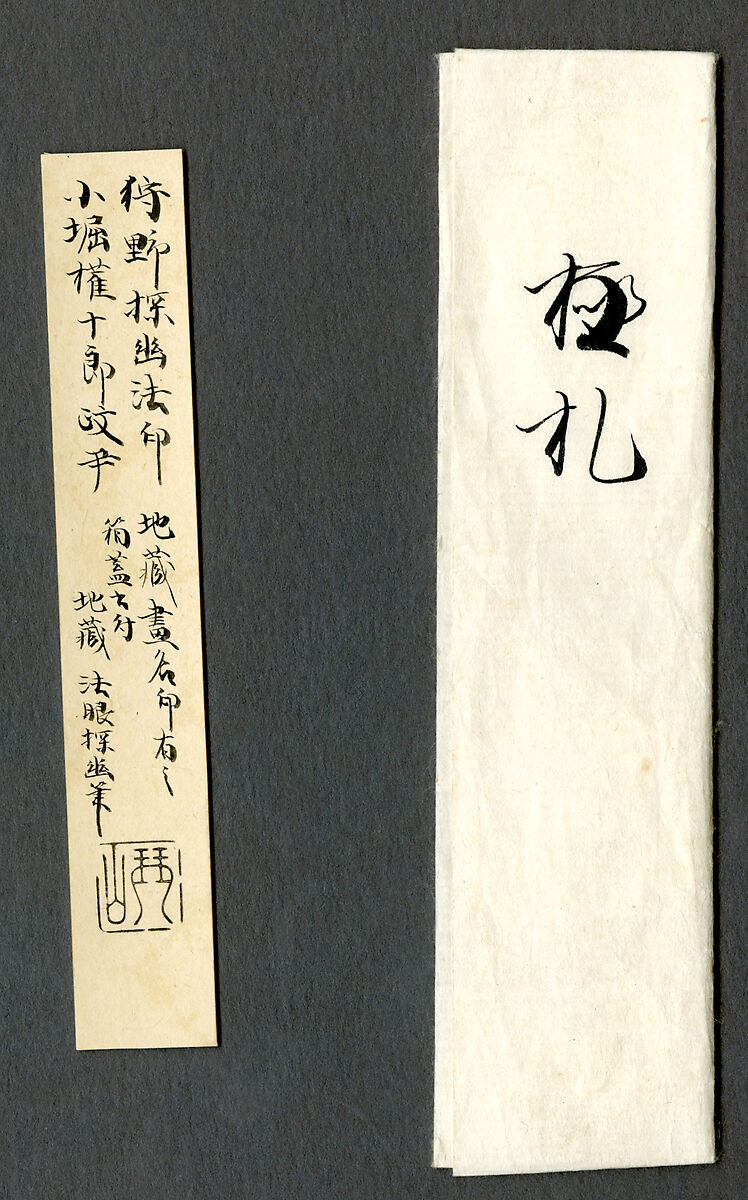 極札
狩野探幽法印 地藏畫名印有之
小堀權十郎政尹 箱蓋書付
地藏 法眼探幽筆
琴山